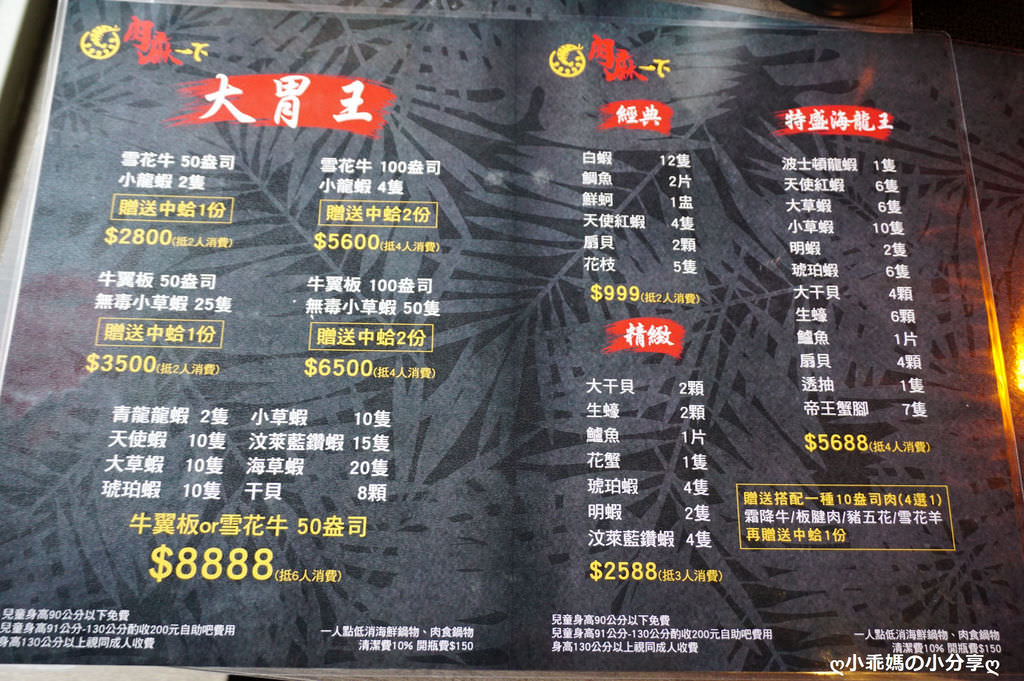 肉麻一下
大胃王
雪花牛 50盎司
小龍蝦 2隻
贈送中蛤1份
$2800(抵2人消費)
雪花牛 100盎司
小龍蝦 4隻
贈送中蛤2份
$5600(抵4人消費)
牛翼板 50盎司
無毒小草蝦 25隻
贈送中蛤1份
$3500(抵2人消費)
牛翼板 100盎司
無毒小草蝦 50隻
贈送中蛤2份
$6500(抵4人消費)
青龍龍蝦 2隻 小草蝦 10隻
天使蝦 10隻 汶萊藍鑽蝦 15隻
大草蝦 10隻 海草蝦 20隻
琥珀蝦 10隻 干貝 8顆
牛翼板or雪花牛 50盎司
$8888(抵6人消費)
兒童身高90公分以下免費
兒童身高91公分-130公分酌收200元自助吧費用
身高130公分以上視同成人收費
一人點低消海鮮鍋物、肉食鍋物
清潔費10% 開瓶費$150
肉麻一下
經典
白蝦 12隻
鯛魚 2片
鮮蚵 1盅
天使紅蝦 4隻
扇貝 2顆
花枝 5隻
$999(抵2人消費)
精緻
大干貝 2顆
生蠔 2顆
鱸魚 1片
花蟹 1隻
琥珀蝦 4隻
明蝦 2隻
汶萊藍鑽蝦 4隻
$2588(抵3人消費)
特盛海龍王
波士頓龍蝦 1隻
天使紅蝦 6隻
大草蝦 6隻
小草蝦 10隻
明蝦 2隻
琥珀蝦 6隻
大干貝 4顆
生蠔 6顆
鱸魚 1片
扇貝 4顆
透抽 1隻
帝王蟹腳 7隻
$5688(抵4人消費)
贈送搭配一種10盎司肉(4選1)
霜降牛/板腱肉/豬五花/雪花羊
再贈送中蛤1份
兒童身高90公分以下免費
兒童身高91公分-130公分酌收200元自助吧費用
身高130公分以上視同成人收費
一人點低消海鮮鍋物、肉食鍋物
清潔費10% 開瓶費$150
ღ小乖媽の小分享ღ